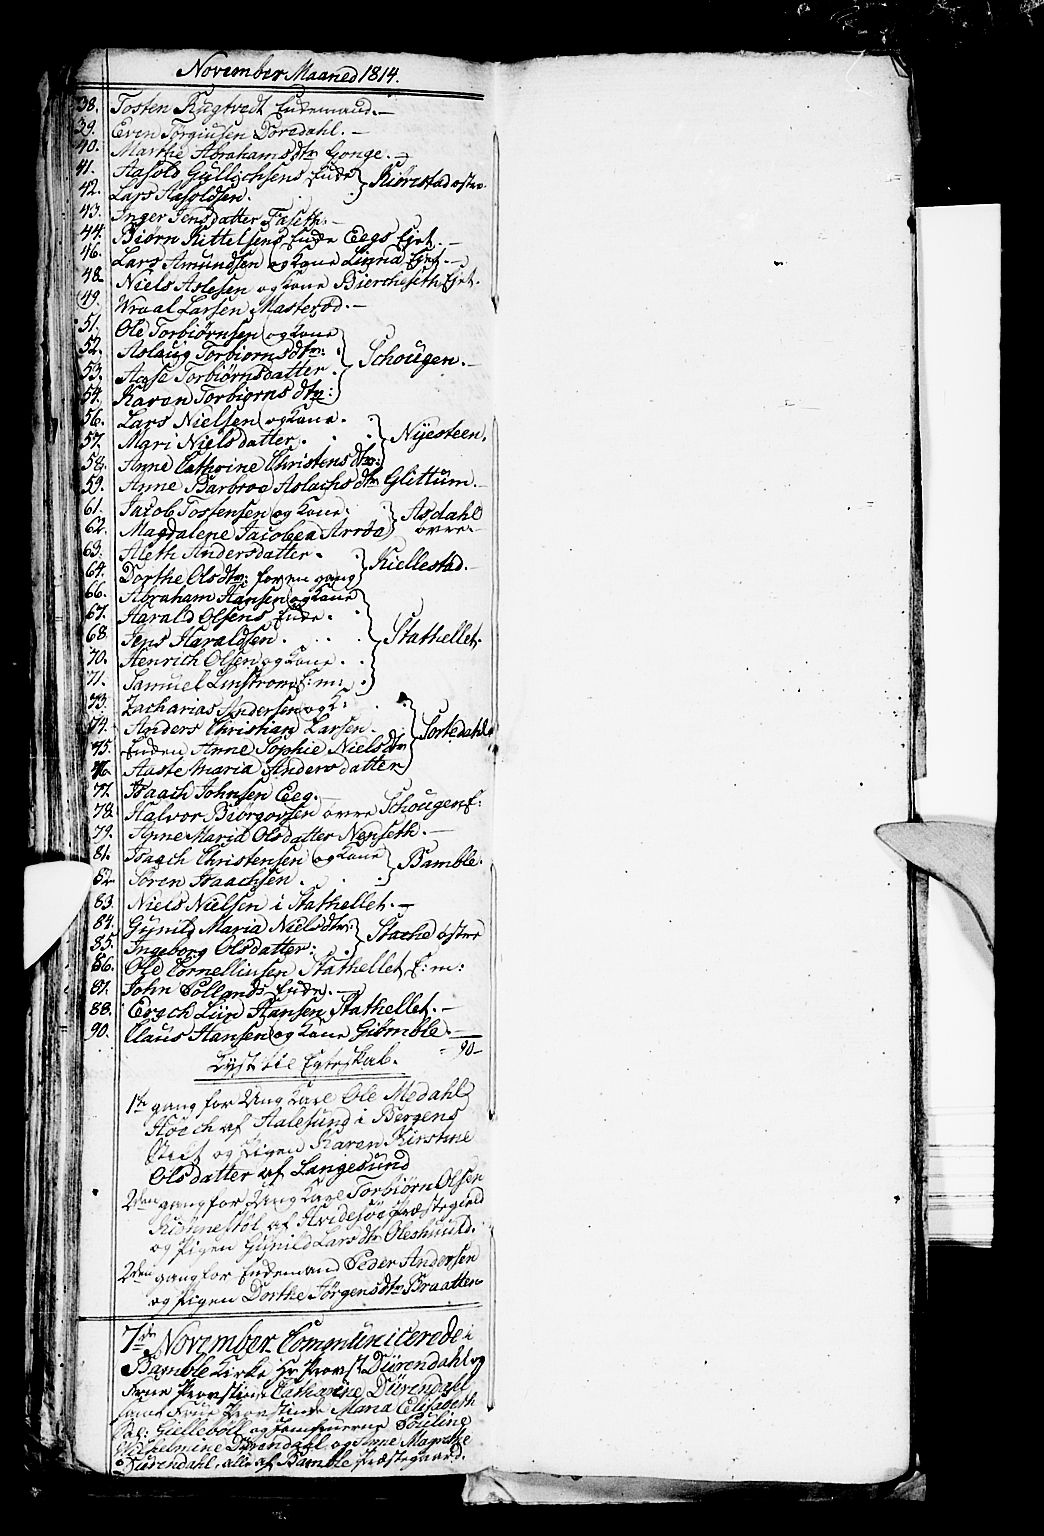 November Maaned 1814.
38. Tosten Rugtvedt Enkemand. —
39. Even Torgiusen Dordahl. —
40. Marthe Abrahamsdtr Gonge. —
41. Aasold Gullichsens Enke
42. Lars Aasoldsen. Kiørstad østre.
43. Inger Jensdatter Faseth. —
44. Biørn Kittelsens Enke Eegs Ejet. —
46. Lars Amundsen og Kone Linna Ejet. —
48. Niels Aslesen og Kone Biercheseth Ejet.
49. Wraal Larsen Masterød. —
51. Ole Torbiørnsen og Kone
52. Aslaug Torbiørnsdtr:
Schougen. —
53. Aase Torbiørnsdatter.
54. Karen Torbiørnsdtr:
56. Lars Nielsen og Kone.
57. Mari Nielsdatter. Nyesteen.
58. Anne Cathrine Christensdtr:
59. Anne Barbroe Aslachsdtr Glittum. —
61. Jacob Tostensen og Kone. Asdahl
62. Magdalene Jacobea Arrøa øvre —
63. Aleth Andersdatter.
64. Dorthe Olsdtr: for en gang Kiellestad. —
66. Abraham Hansen og Kone
67. Harald Olsens Enke.
68. Jens Haraldsen. Stathellet.
70. Henrich Olsen og Kone.
71. Samuel Linstrom E: m:
73. Zacharias Andersen og K:
74. Anders Christian Larsen. Tortedahl.
75. Enken Anne Sophie Nielsdtr
76. Aaste Maria Andersdatter
77. Isaach Johnsen Eeg. —
78. Halvor Biørgovsen øvre Schougen E:
79. Anne Maria Olsdatter Nenseth. —
81. Isaach Christensen og Kone Bamble.
82. Søren Isaachsen.
83. Niels Nielsen i Stathellet. —
84. Gunild Maria Nielsdtr:
Stache østre
85. Ingeborg Olsdatter:
86. Ole Cornelliusen Stathellet E: m:
87. John Enke. —
88. Erech Hansen Stathellet. —
90. Claus Hansen og Kone Giømble. —
90 —
Lyst til Egteskab.
1ste gang for Ung Karl Ole Medahl
Hoech af Aalesund i Bergens
Stift og Pigen Karen Kirstine
Olsdatter af Langesund
2den gang for Ung Karl Torbiørn Olsen
af Hvidesøe Præstegield
og Pigen Gunild Larsdtr
2den gang for Enkemand Peder Andersen
og Pigen Dorthe Jørgensdtr Braatten
7de November Communicerede i
Bamble Kirke Hr Provst Dürendahl og
Frue Provstinde Catharine Dürendahl
samt Frue Provstinde Maria Elisabeth
Giellebøll og Jomfruerne Pouline
Wilhelmine Dürendahl og Anne Magrethe
Dürendahl, alle af Bamble Præstegaard.